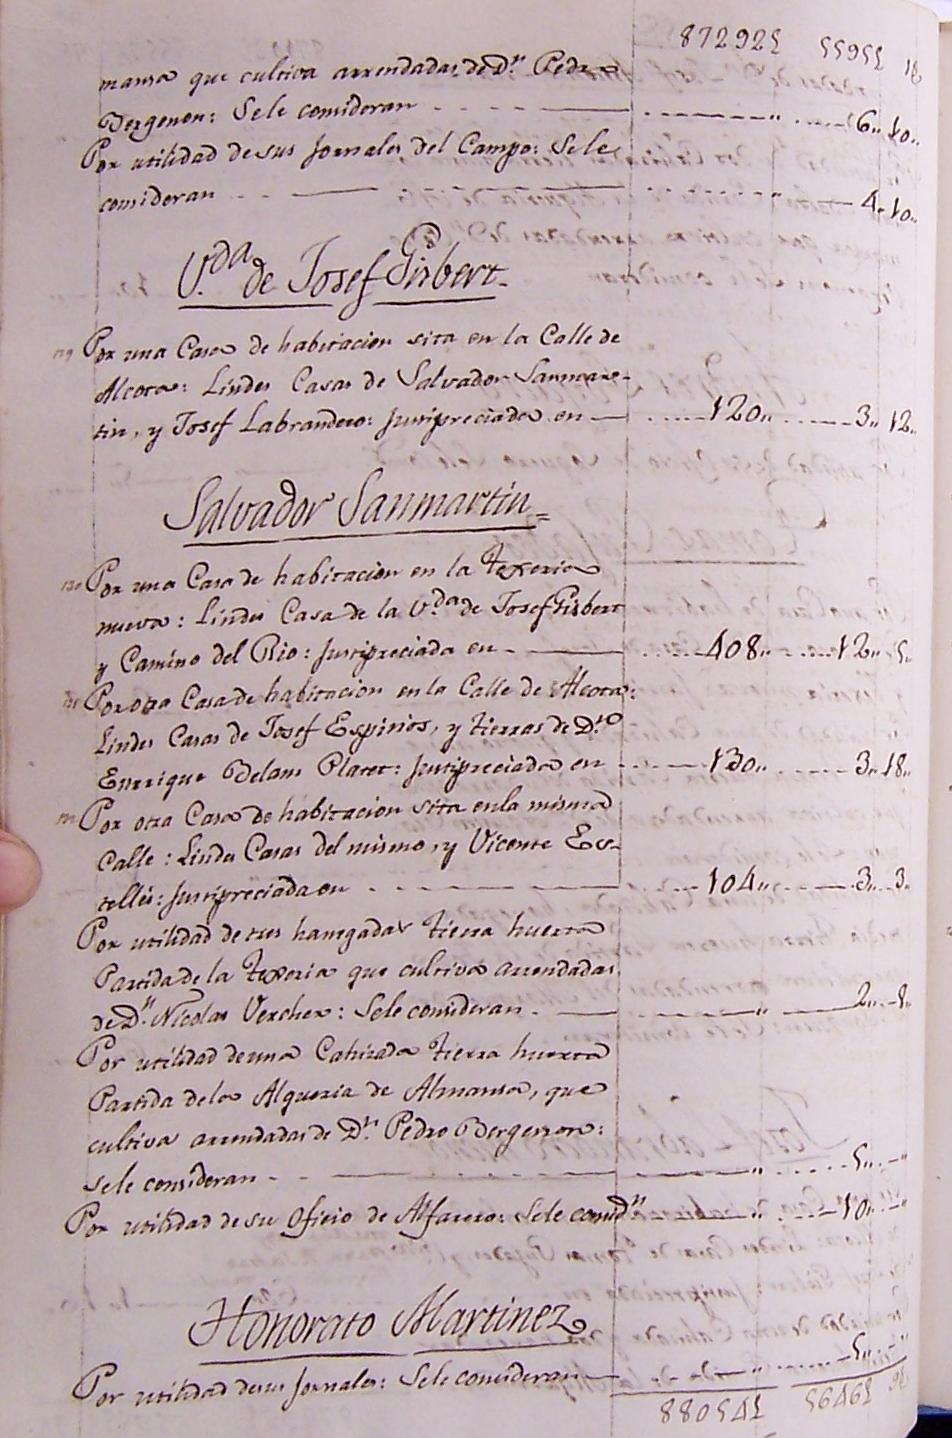 872925 55955
mansa que cultiva arrendadas de Dn. Pedro
Bergeron: Sele consideran 6,, 10,,
Por utilidad de sus Jornales del Campo: Sele
consideran 4,, 10,,
V.da de Josef Gisbert
119 Por una Casa de habitacion sita en la Calle de
Alcora: Lindes Casas de Salvador Sanmar-
tin, y Josef Labrandero: Justipreciada en 120,, 3,, 12,,
Salvador Sanmartin
120 Por una Casa de habitacion en la Texeria
nueva: Lindes Casa de la V.da de Josef Gisbert
y Camino del Rio: Justipreciada en 408,, 12,, 5,,
121 Por otra Casa de habitacion en la Calle de Alcora:
Lindes Casas de Josef Espinos, y tierras de D.n
Enrrique Delans Placet: Justipreciada en 130,, 3,, 18,,
122 Por otra Casa de habitacion sita en la misma
Calle: Lindes Casas del mismo, y Vicente Es-
telles: Justipreciada en 104,, 3,, 3,,
Por utilidad de tres hanegadas tierra huerta
Partida de la Texeria que cultiva arrendadas
de Dn. Nicolas Vercher: Sele consideran ,, 2,, 8,,
Por utilidad de una Cahizada tierra huerta
Partida de la Alqueria de Almansa, que
cultiva arrendadas de Dn. Pedro Bergeron:
Sele consideran ,, 5,, ,,
Por utilidad de su Oficio de Alfarero: Sele considn ,, 10,, ,,
Honorato Martinez
Por utilidad de sus Jornales: Sele consideran ,, 5,, ,,
880545 56465